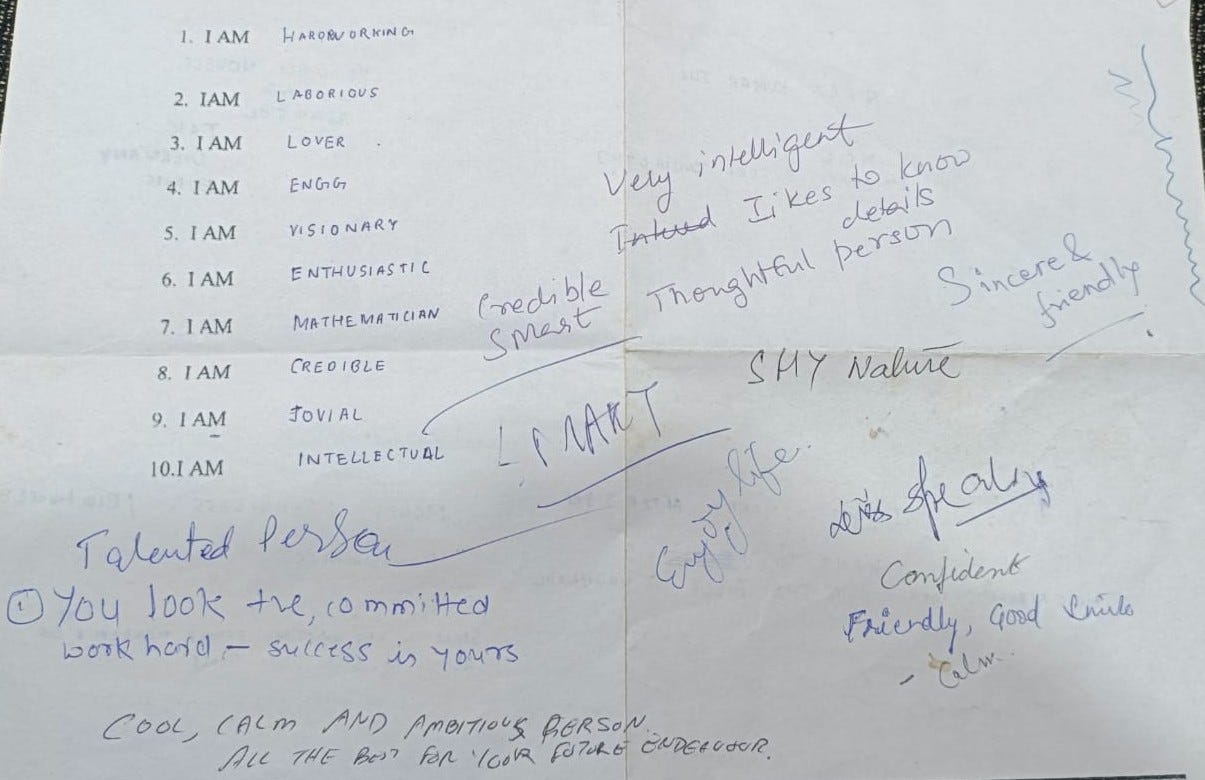 1. I AM HARDWORKING
2. IAM LABORIOUS
3. I AM LOVER
4. I AM ENGG
5. I AM VISIONARY
6. I AM ENTHUSIASTIC
7. I AM MATHEMATICIAN
8. I AM CREDIBLE
9. I AM JOVIAL
10.I AM INTELLECTUAL
Very intelligent
likes to know
details
Thoughtful person
Credible
Smart
Sincere &
friendly
SHY Nature
SMART
Enjoy life.
Speaking
Confident
Friendly, Good Smile
- Calm.
Talented Person
① You look +ve, committed
work hard - success is yours
COOL, CALM AND AMBITIOUS PERSON.
ALL THE BEST FOR YOUR FUTURE ENDEAVOUR.